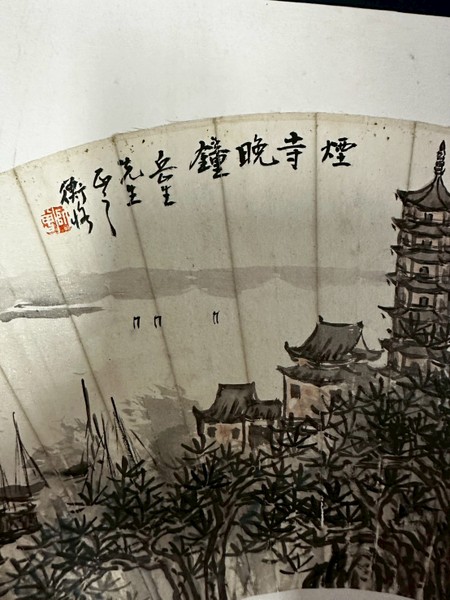 煙寺晚鐘
岳生
先生
正之
衡恪